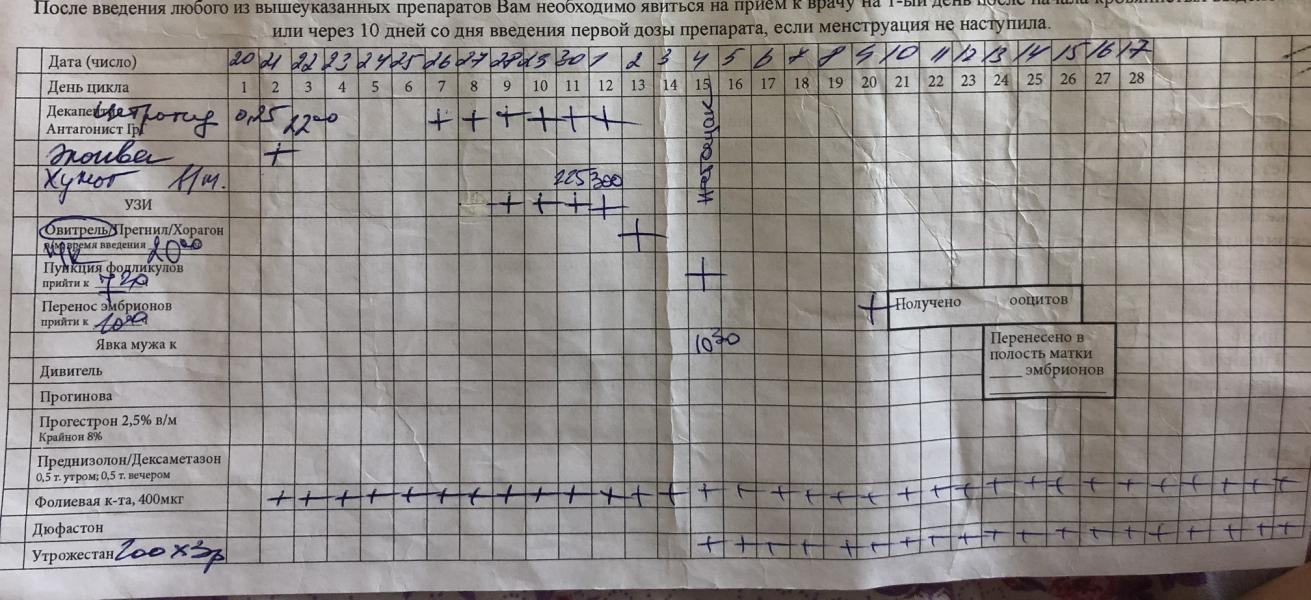 После введения любого из вышеуказанных препаратов Вам необходимо явиться на прием к врачу на 1-ый день после начала
или через 10 дней со дня введения первой дозы препарата, если менструация не наступила.
Дата (число) 20 21 22 23 24 25 26 27 28 29 30 1 2 3 4 5 6 7 8 9 10 11 12 13 14 15 16 17
День цикла 1 2 3 4 5 6 7 8 9 10 11 12 13 14 15 16 17 18 19 20 21 22 23 24 25 26 27 28
Цетротид 0,25 22 00 + + + + + +
Антагонист Гр
Элонва +
Хумог 11 225 300
УЗИ + + + +
Овитрель/Прегнил/Хорагон +
время введения 20 00
Пункция фолликулов +
прийти к 7 30
Перенос эмбрионов + Получено ооцитов
прийти к 10 00
Явка мужа к 10 30
Перенесено в
полость матки
____ эмбрионов
Дивигель
Прогинова
Прогестрон 2,5% в/м
Крайнон 8%
Преднизолон/Дексаметазон
0,5 т. утром; 0,5 т. вечером
Фолиевая к-та, 400мкг + + + + + + + + + + + + + + + + + + + + + + + + + + + + + + + +
Дюфастон
Утрожестан 200 х 3р + + + + + + + + + + + + + + + + + + +